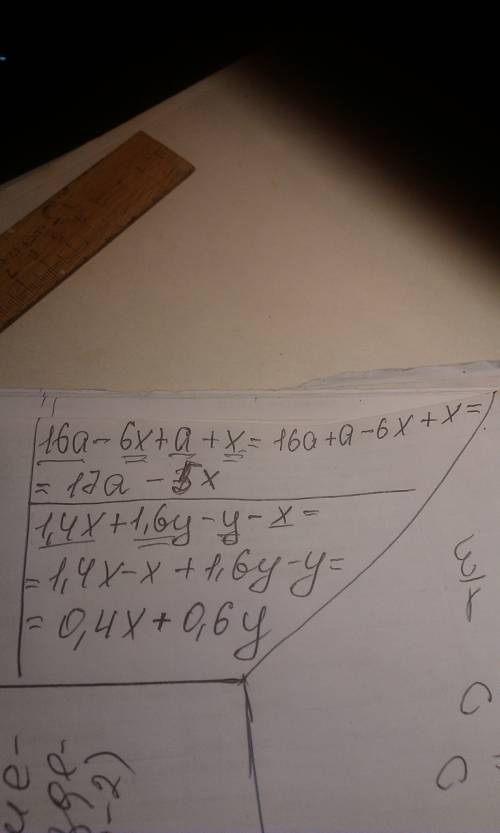 16a - 6x + a + x = 16a + a - 6x + x =
= 17a - 5x
1,4x + 1,6y - y - x =
= 1,4x - x + 1,6y - y =
= 0,4x + 0,6y